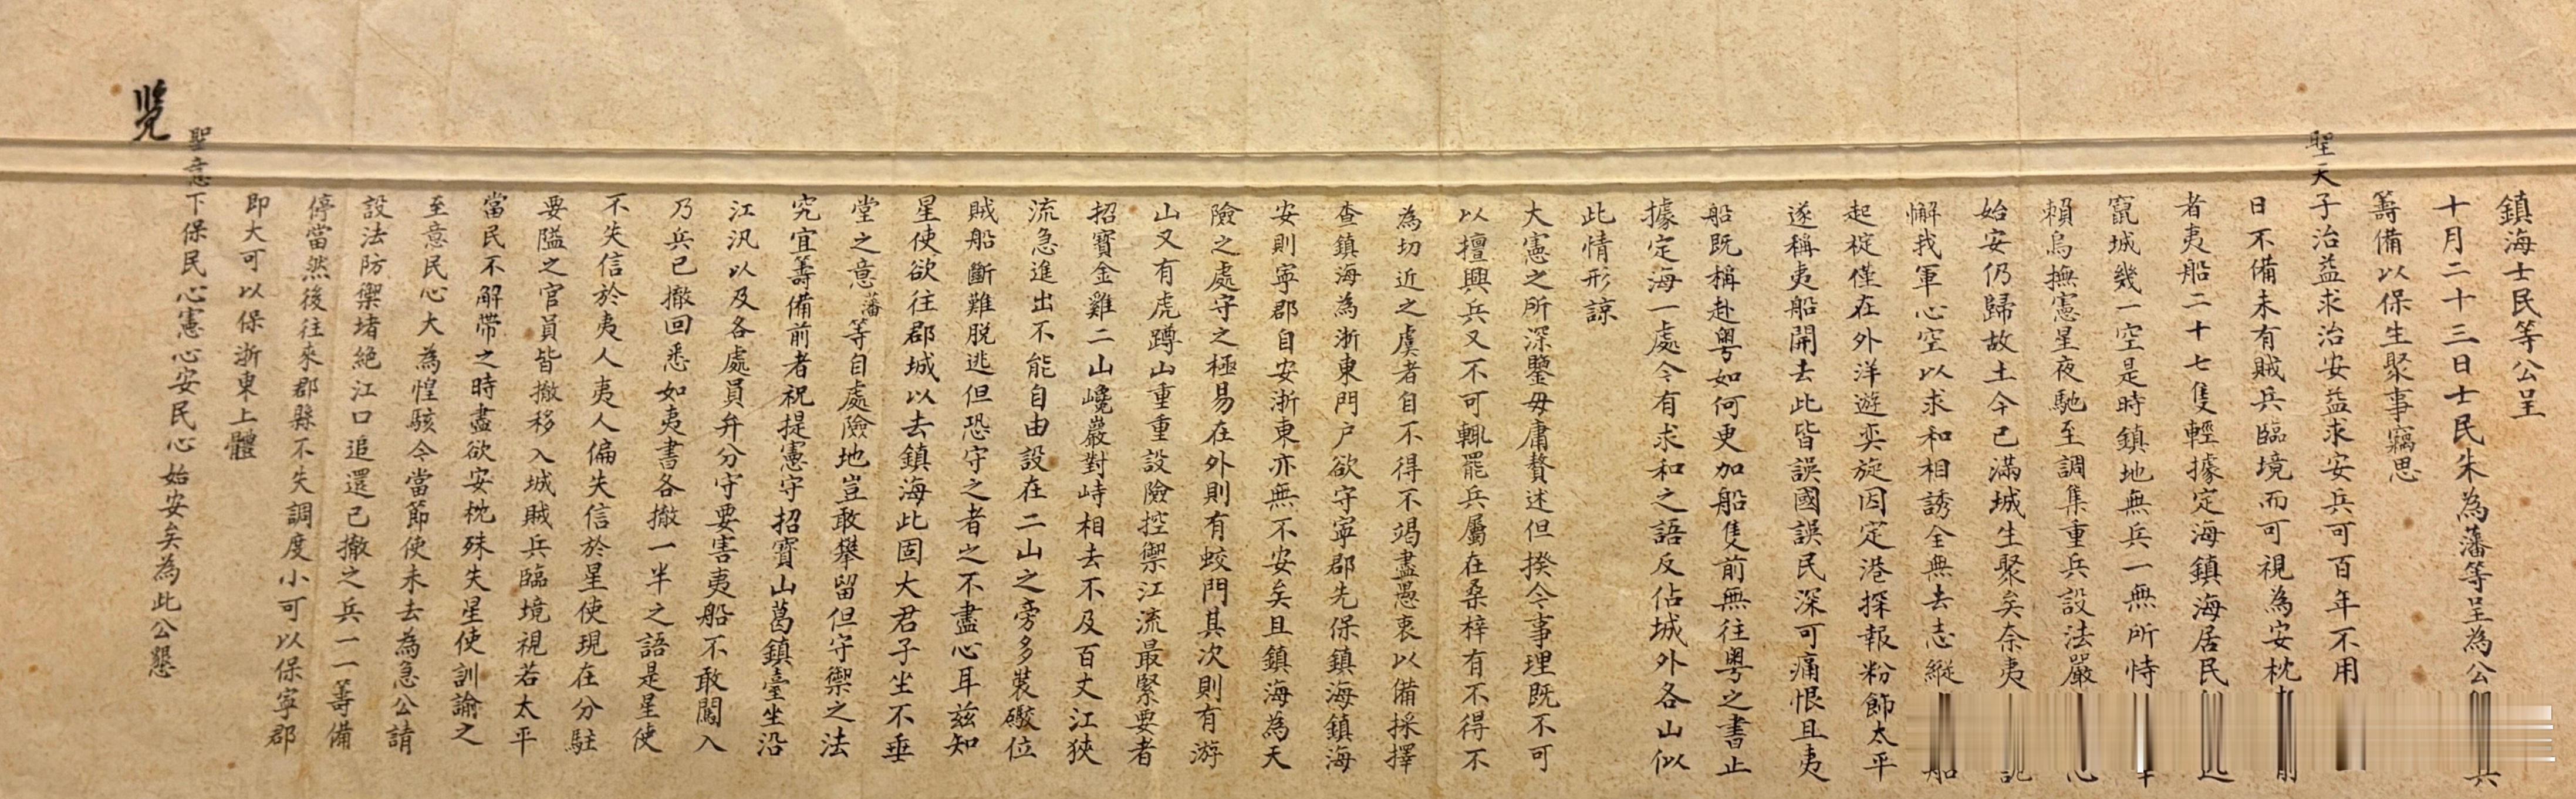 鎮海士民等公呈
十月二十三日士民朱為藩等呈為公
籌備以保生聚事竊思
聖天子治益求治安益求安兵可百年不用
日不備未有賊兵臨境而可視為安枕
者夷船二十七隻輕據定海鎮海居民
竄城幾一空是時鎮地無兵一無所恃
賴烏撫憲星夜馳至調集重兵設法嚴
始安仍歸故土今已滿城生聚矣奈夷
懈我軍心空以求和相誘全無去志縱
起椗僅在外洋遊奕旋因定港探報粉飾太平
遂稱夷船開去此皆誤國誤民深可痛恨且夷
船既稱赴粵如何更加船隻前無往粵之書止
據定海一處今有求和之語反佔城外各山似
此情形諒
大憲之所深鑒毋庸贅述但揆今事理既不可
以擅興兵又不可輒罷兵屬在桑梓有不得不
為切近之虞者自不得不竭盡愚衷以備採擇
查鎮海為浙東門戶欲守寧郡先保鎮海鎮海
安則寧郡自安浙東亦無不安矣且鎮海為天
險之處守之極易在外則有蛟門其次則有游
山又有虎蹲山重重設險控禦江流最緊要者
招寶金雞二山巉巖對峙相去不及百丈江狹
流急進出不能自由設在二山之旁多裝礮位
賊船斷難脫逃但恐守之者之不盡心耳茲知
星使欲往郡城以去鎮海此固大君子坐不垂
堂之意藩等自處險地豈敢攀留但守禦之法
究宜籌備前者祝提憲守招寶山葛鎮臺坐沿
江汛以及各處員弁分守要害夷船不敢闖入
乃兵已撤回悉如夷書各撤一半之語是星使
不失信於夷人夷人偏失信於星使現在分駐
要隘之官員皆撤移入城賊兵臨境視若太平
當民不解帶之時盡欲安枕殊失星使訓諭之
至意民心大為惶駭今當節使未去為急公請
設法防禦堵絕江口追還已撤之兵一一籌備
停當然後往來郡縣不失調度小可以保寧郡
即大可以保浙東上體
聖意下保民心憲心安民心始安矣為此公懇
覽